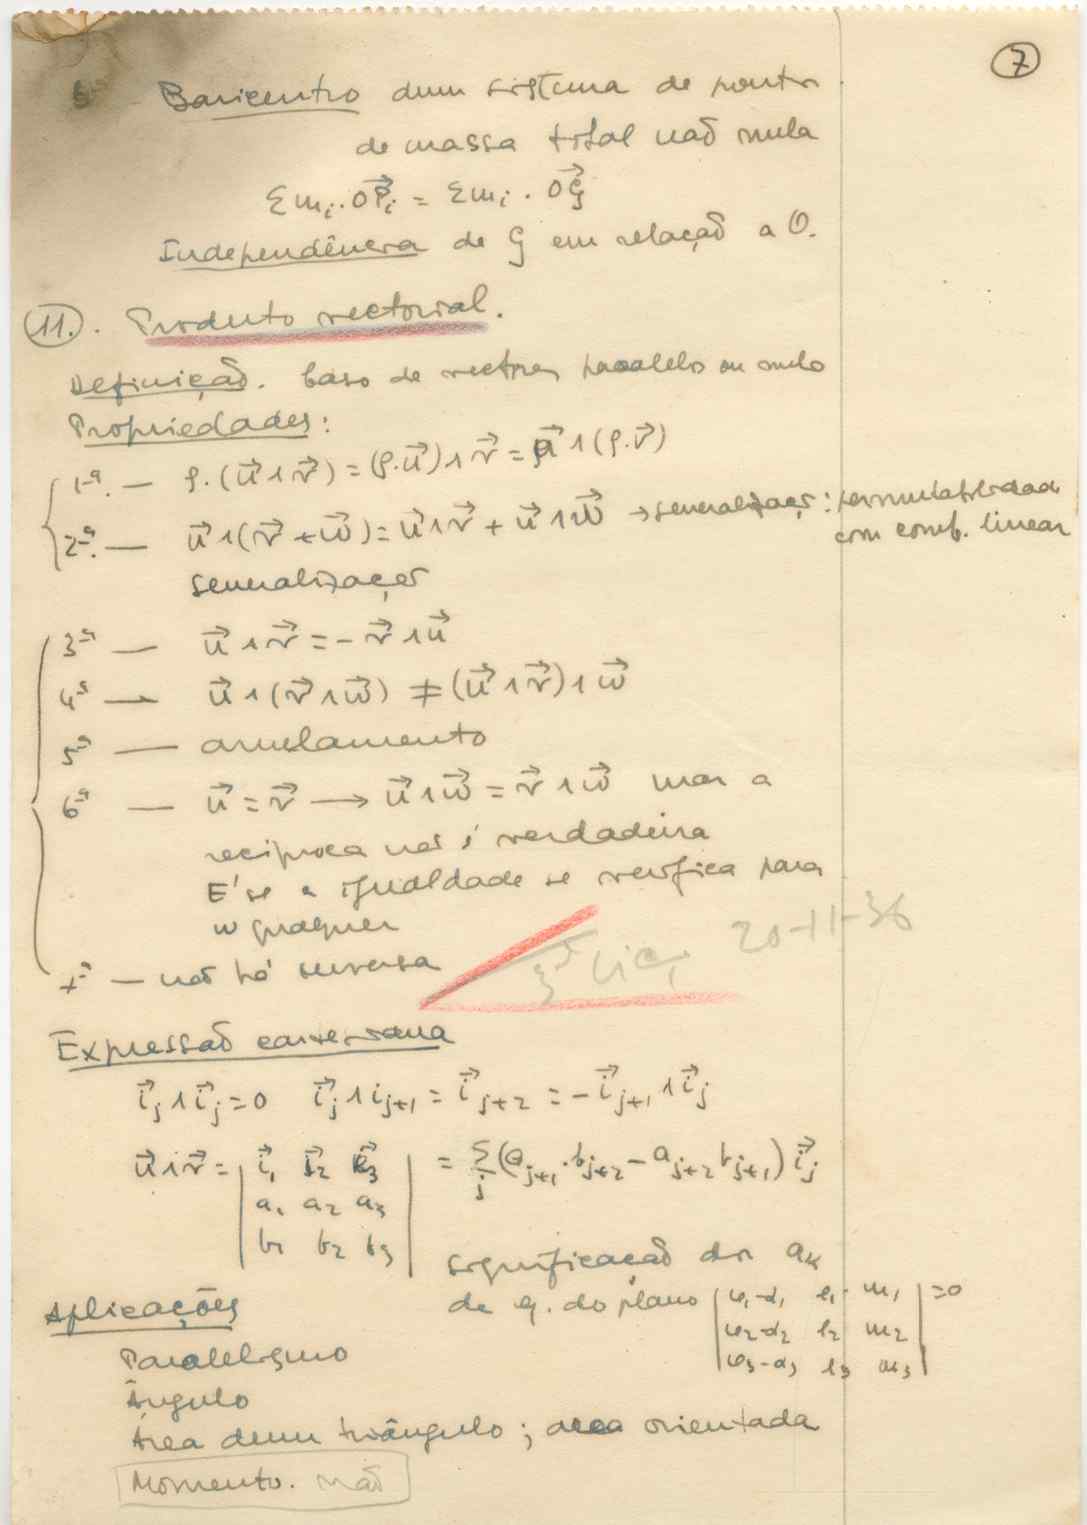 7
Baricentro dum sistema de pontos
de massa total não nula
Σ mᵢ. OP⃗ᵢ = Σ mᵢ . OG⃗
Independência de G em relação a O.
11. Produto vectorial.
Definição. Caso de vectores paralelos ou nulo
Propriedades:
1ª. — ρ.(u⃗ ∧ v⃗) = (ρ.u⃗) ∧ v⃗ = u⃗ ∧ (ρ.v⃗)
2ª. — u⃗ ∧ (v⃗ + w⃗) = u⃗ ∧ v⃗ + u⃗ ∧ w⃗ → generalizações: permutabilidade
com comb. linear
generalizações
3ª — u⃗ ∧ v⃗ = - v⃗ ∧ u⃗
4ª — u⃗ ∧ (v⃗ ∧ w⃗) ≠ (u⃗ ∧ v⃗) ∧ w⃗
5ª — anulamento
6ª — u⃗ = v⃗ → u⃗ ∧ w⃗ = v⃗ ∧ w⃗ mas a
recíproca não é verdadeira
É se a igualdade se verifica para
w qualquer
7ª — não há inversa
3ª Lic. 20-11-36
Expressão cartesiana
i⃗ⱼ ∧ i⃗ⱼ = 0 i⃗ⱼ ∧ iⱼ₊₁ = i⃗ⱼ₊₂ = - i⃗ⱼ₊₁ ∧ i⃗ⱼ
u⃗ ∧ v⃗ = | i⃗₁ i⃗₂ i⃗₃ | = Σⱼ (aⱼ₊₁.bⱼ₊₂ - aⱼ₊₂ bⱼ₊₁) i⃗ⱼ
a₁ a₂ a₃
b₁ b₂ b₃
significação dos aₖ
da eq. do plano | φ₁-α₁ l₁ m₁ | = 0
φ₂-α₂ l₂ m₂
φ₃-α₃ l₃ m₃
Aplicações
Paralelismo
Ângulo
Área dum triângulo; area orientada
Momento. não